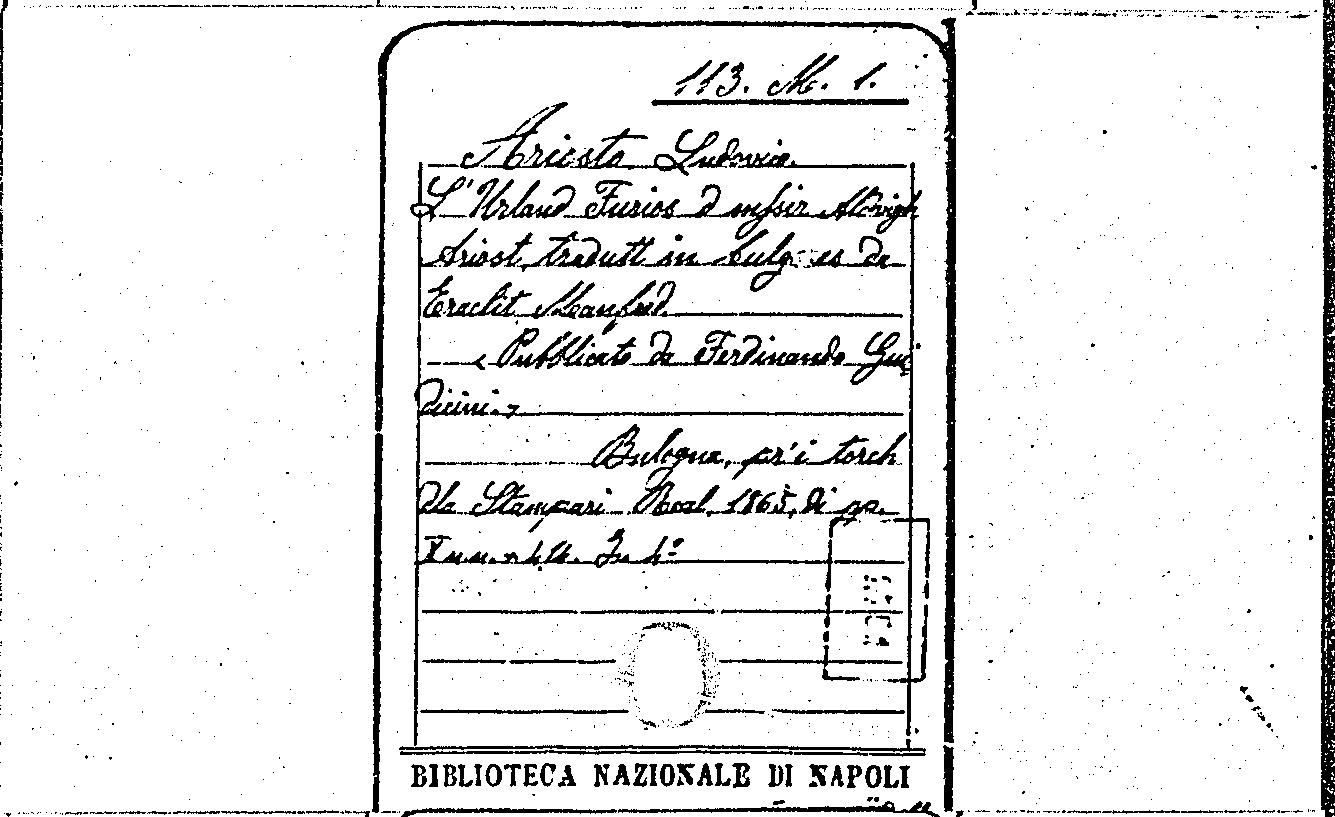 113. M. 1.
Ariosto Ludovico.
L'Urland Furios d messir Aldvigh
Ariost, tradutt in bulgnes da
Eraclit Manfred.
Pubblicato da Ferdinando Gui
dicini.
Bulogna, pr'i torch
dla Stampari Real, 1865, di pp.
In 4°
BIBLIOTECA NAZIONALE DI NAPOLI